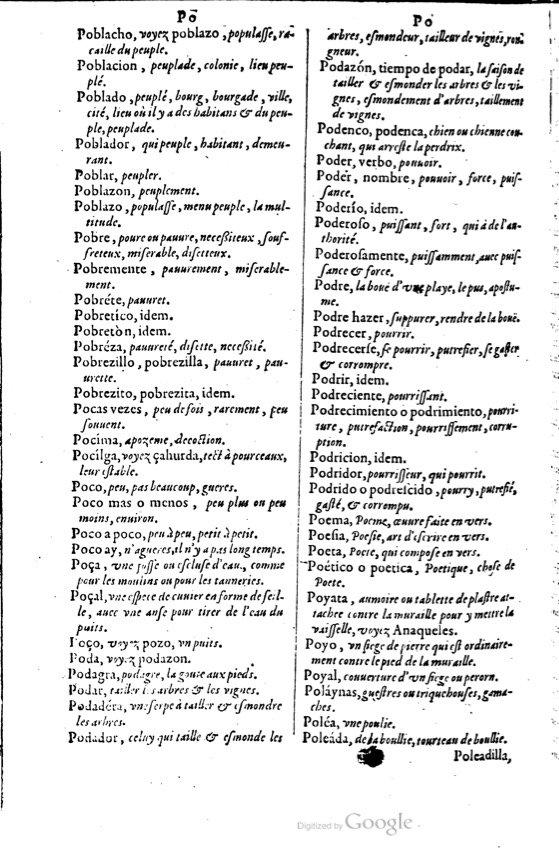 Po
Poblacho, voyez poblazo, populasse, ra-
caille du peuple.
Poblacion, peuplade, colonie, lieu peu-
plé.
Poblado, peuplé, bourg, bourgade, ville,
cité, lieu où il y a des habitans & du peu-
ple, peuplade.
Poblador, qui peuple, habitant, demeu-
rant.
Poblar, peupler.
Poblazon, peuplement.
Poblazo, populasse, menu peuple, la mul-
titude.
Pobre, poure ou pauure, necessiteux, souf-
freteux, miserable, disetteux.
Pobremente, pauurement, miserable-
ment.
Pobréte, pauuret.
Pobretico, idem.
Pobretòn, idem.
Pobréza, pauureté, disette, necessité.
Pobrezillo, pobrezilla, pauuret, pau-
urette.
Pobrezito, pobrezita, idem.
Pocas vezes, peu de fois, rarement, peu
souuent.
Pocima, apozeme, decoction.
Pocilga, voyez çahurda, tect à pourceaux,
leur estable.
Poco, peu, pas beaucoup, gueres.
Poco mas o menos, peu plus ou peu
moins, enuiron.
Poco a poco, peu à peu, petit à petit.
Poco ay, n'agueres, il n'y a pas long temps.
Poça, vne fosse ou escluse d'eau, comme
pour les moulins ou pour les tanneries.
Poçal, vne espece de cuuier en forme de seil-
le, auec vne anse pour tirer de l'eau du
puits.
Poço, voyez pozo, vn puits.
Poda, voyez podazon.
Podagra, podagre, la goute aux pieds.
Podar, tailler les arbres & les vignes.
Podadéra, vne serpe à tailler & esmondre
les arbres.
Podador, celuy qui taille & esmonde les
Po
arbres, esmondeur, tailleur de vignes, roi-
gneur.
Podazón, tiempo de podar, la saison de
tailler & esmonder les arbres & les vi-
gnes, esmondement d'arbres, taillement
de vignes.
Podenco, podenca, chien ou chienne cou-
chant, qui arreste la perdrix.
Poder, verbo, pouuoir.
Podér, nombre, pouuoir, force, puis-
sance.
Poderío, idem.
Poderoso, puissant, fort, qui a de l'au-
thorité.
Poderosamente, puissamment, auec puis-
sance & force.
Podre, la bouë d'vne playe, le pus, apostu-
me.
Podre hazer, suppurer, rendre de la bouë.
Podrecer, pourrir.
Podrecerse, se pourrir, putrefier, se gaster
& corrompre.
Podrir, idem.
Podreciente, pourrissant.
Podrecimiento o podrimiento, pourri-
ture, putrefaction, pourrissement, corru-
ption.
Podricion, idem.
Podridor, pourrisseur, qui pourrit.
Podrido o podrescido, pourry, putrefié,
gasté, & corrompu.
Poema, Poeme, œuure faite en vers.
Poesia, Poesie, art d'escrire en vers.
Poeta, Poete, qui compose en vers.
Poético o poetica, Poetique, chose de
Poete.
Poyata, aumoire ou tablette de plastre at-
tachee contre la muraille pour y mettre la
vaisselle, voyez Anaqueles.
Poyo, vn siege de pierre qui est ordinaire-
ment contre le pied de la muraille.
Poyal, couuerture d'vn siege ou perron.
Poláynas, guestres ou triquehouses, gama-
ches.
Poléa, vne poulie.
Poleáda, de la boullie, tourteau de boullie.
Poleadilla,
Digitized by Google